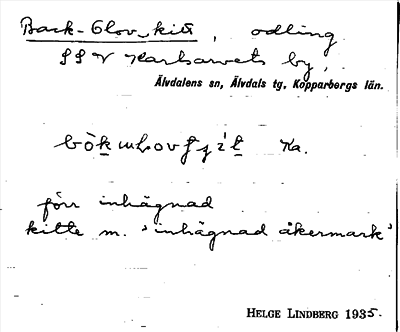 Back-Olov-kitt, odling
SSV Karlsarvets by,
Älvdalens sn, Älvdals tg, Kopparbergs län.
Ka.
förr inhägnad
kitte m. 'inhägnad åkermark'
HELGE LINDBERG 1935.